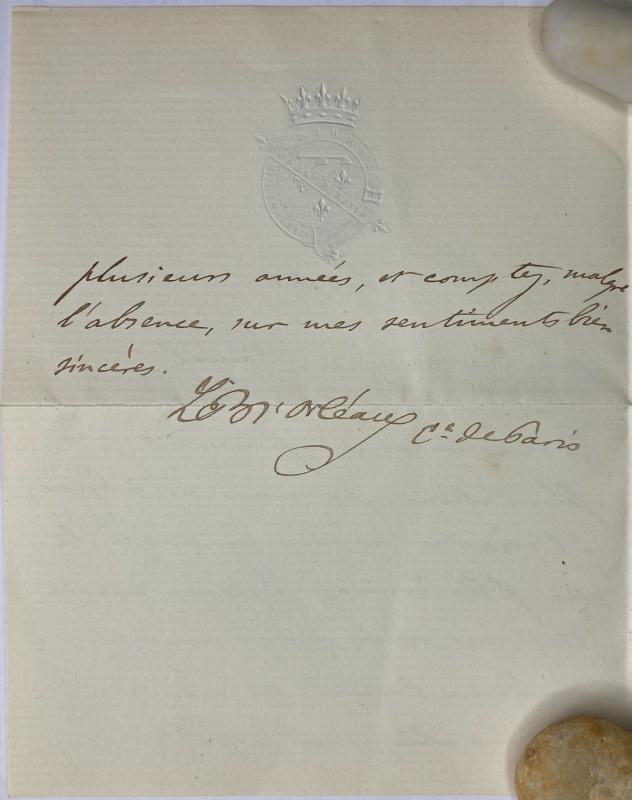 plusieurs années, et comptez, malgré
l'absence, sur mes sentiments bien
sincères.
d'Orléans Cte de Paris